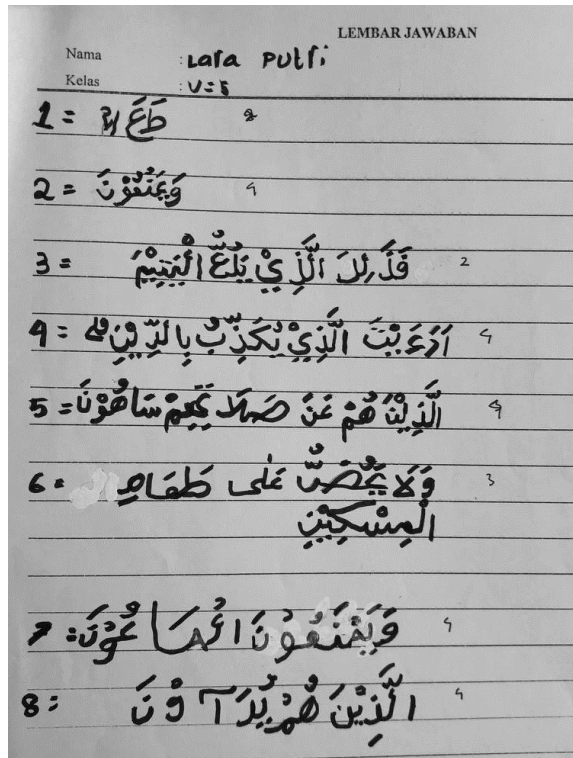 LEMBAR JAWABAN
Nama : Lara Putri
Kelas : V = 5
1 = طَعَ
2 = وَيَمْنَعُوْنَ 4
3 = فَذَ لِكَ الَّذِيْ يَدُعُّ الْيَتِيْمَ 2
4 = اَرَءَيْتَ الَّذِيْ يُكَذِّبُ بِالدِّيْنِ 4
5 = الَّذِيْنَ هُمْ عَنْ صَلَا تِهِمْ سَاهُوْنَ 4
6 = وَلَا يَحُضُّ عَلٰى طَعَامِ 3
الْمِسْكِيْنِ
7 = وَيَمْنَعُوْنَ الْمَا عُوْنَ 4
8 = الَّذِيْنَ هُمْ يُرَآ ءُوْنَ 4